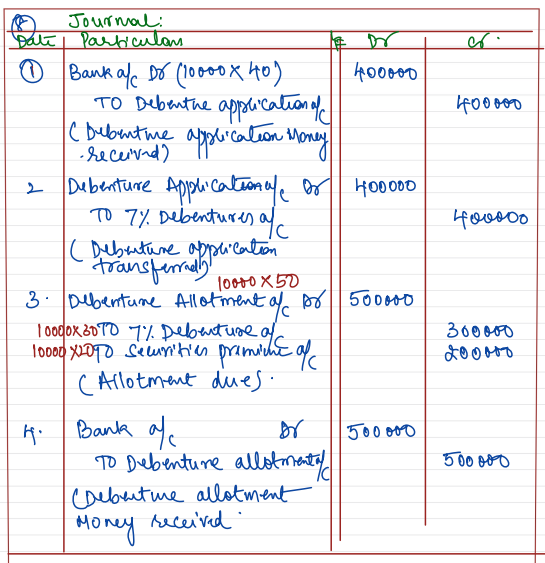 8 Journal:
Date Particulars F Dr Cr.
1 Bank a/c Dr (10000 X 40) 400000
TO Debentue application a/c 400000
( Debenture application Money
received)
2 Debenture Application a/c Dr 400000
TO 7% Debentures a/c 400000
( Debenture application
transferred)
10000 X 50
3. Debenture Allotment a/c Dr 500000
10000X30 TO 7% Debenture a/c 300000
10000 X20 TO Securities premium a/c 200000
( Allotment dues.
4. Bank a/c Dr 500000
TO Debenture allotment a/c 500000
(Debenture allotment
Money received.